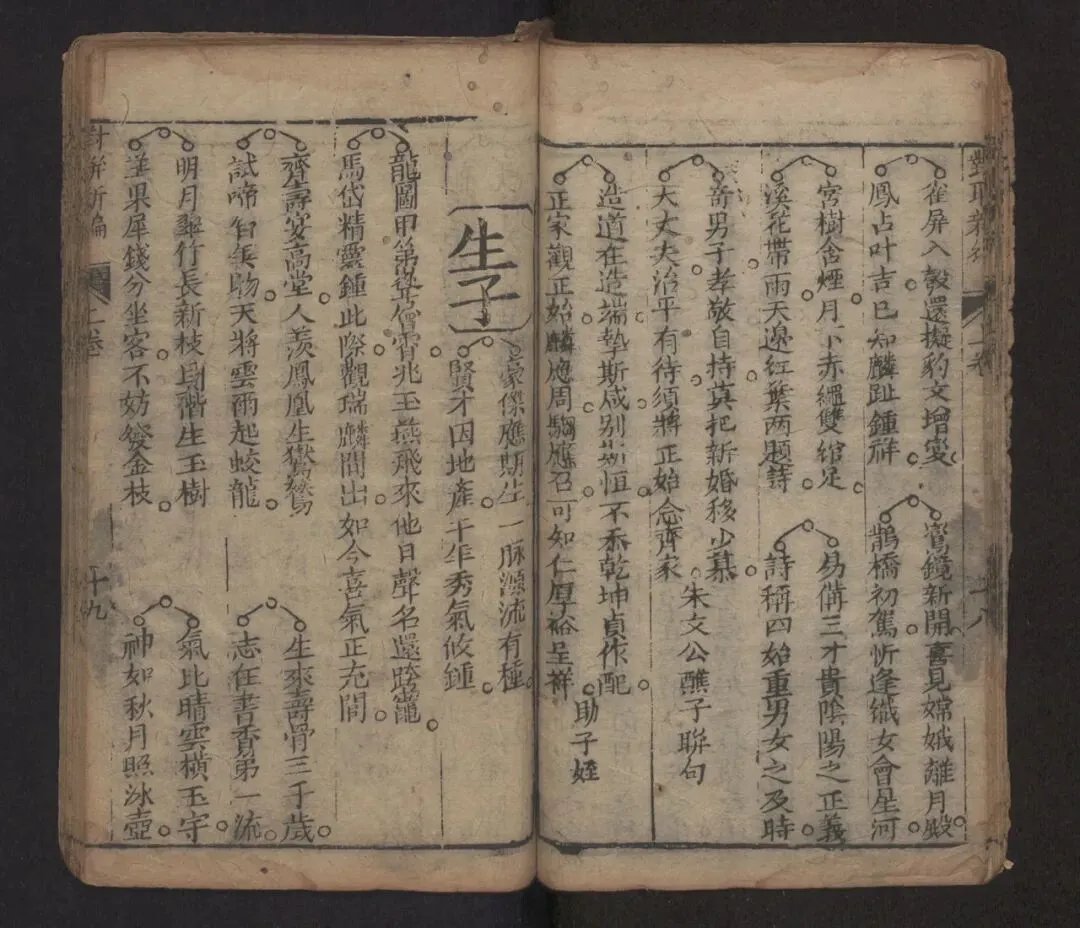 雀屏入彀還擬豹文增變
鳳占叶吉已知麟趾鍾祥
鸞鏡新開喜見嫦娥離月殿
鵲橋初駕忻逢織女會星河
宮樹含煙月下赤繩雙綰足
溪花帶雨天邊紅葉两題詩
易備三才貴陰陽之正義
詩稱四始重男女之及時
奇男子孝敬自持莫把新婚移少慕
大丈夫治平有待須將正始念齊家
朱文公醮子聯句
造道在造端摯斯咸别斯恒不忝乾坤貞作配
正家觀正始麟應周騶應召可知仁厚裕呈祥
助子姪
十八
生子
豪傑應期生一脉源流有種
賢才因地產千年秀氣攸鍾
龍圖甲第登僧霄兆玉燕飛來他日聲名還跨竈
馬岱精靈鍾此際觀瑞麟間出如今喜氣正充閭
齊壽宴高堂人羨鳳凰生鸑鷟
試啼智無物天將雲雨起蛟龍
生來壽骨三千歲
志在書香第一流
明月翠竹長新枝則階生玉樹
羊果犀錢分坐客不妨發金枝
氣比晴雲橫玉宇
神如秋月照冰壺
新編
上卷
十九